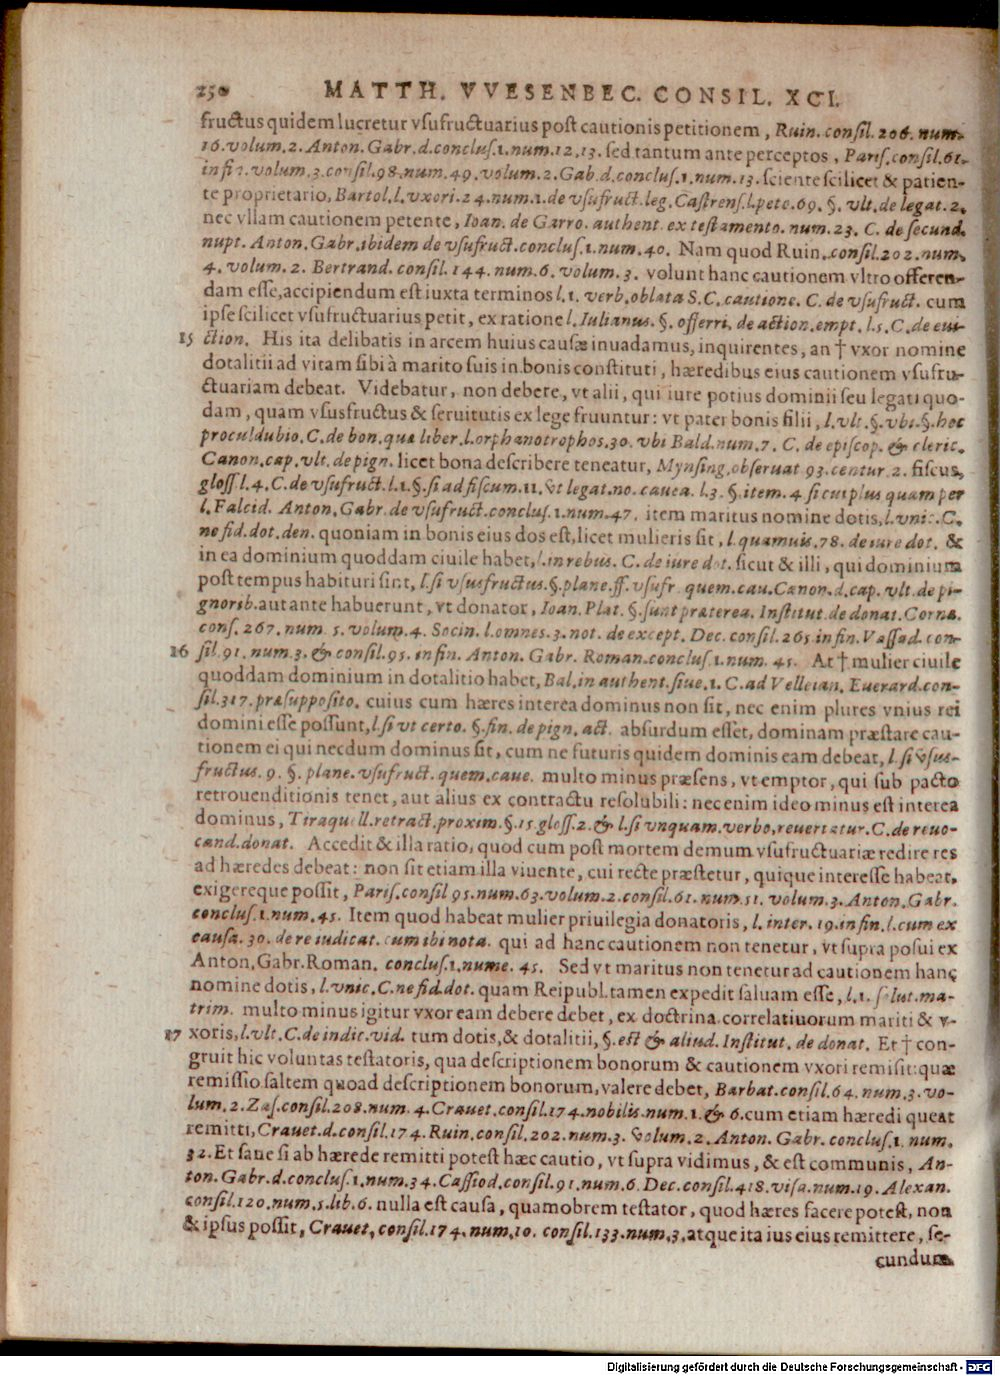 250 MATTH. VVESENBEC. CONSIL. XCI.
fructus quidem lucretur vſufructuarius poſt cautionis petitionem, Ruin. conſil. 206. num.
16. volum. 2. Anton. Gabr. d. concluſ. 1. num. 12. 13. ſed tantum ante perceptos, Pariſ. conſil. 61.
in fin. volum. 3. conſil. 98. num. 49. volum. 2. Gab. d. concluſ. 1. num. 13. sciente ſcilicet & patien-
te proprietario, Bartol. l. vxori. 24. num. 1. de vſufruct. leg. Caſtrenſ. l. peto. 69. §. vlt. de legat. 2.
nec vllam cautionem petente, Ioan. de Garro. authent. ex teſtamento. num. 23. C. de ſecund.
nupt. Anton. Gabr. ibidem de vſufruct. concluſ. 1. num. 40. Nam quod Ruin. conſil. 202. num.
4. volum. 2. Bertrand. conſil. 144. num. 6. volum. 3. volunt hanc cautionem vltro offeren-
dam eſſe, accipiendum eſt iuxta terminos l. 1. verb. oblata S. C. cautione. C. de vſufruct. cum
ipſe ſcilicet vſufructuarius petit, ex ratione l. Iulianus. §. offerri. de action. empt. l. 5. C. de eui-
15 ction. His ita delibatis in arcem huius cauſæ inuadamus, inquirentes, an † vxor nomine
dotalitii ad vitam ſibi à marito ſuis in bonis conſtituti, hæredibus eius cautionem vſufru-
ctuariam debeat. Videbatur, non debere, vt alii, qui iure potius dominii ſeu legati quo-
dam, quam vſusfructus & ſeruitutis ex lege fruuntur: vt pater bonis filii, l. vlt. §. vbi. §. hoc
proculdubio. C. de bon. quæ liber. l. orphanotrophos. 30. vbi Bald. num. 7. C. de epiſcop. & cleric.
Canon. cap. vlt. de pign. licet bona deſcribere teneatur, Mynſing. obſeruat 93. centur. 2. fiſcus,
gloſſ l. 4. C. de vſufruct. l. 1. §. ſi ad fiſcum. 11. vt legat. no. cauea. l. 3. §. item. 4 ſi cui plus quam per
l. Falcid. Anton. Gabr. de vſufruct. concluſ. 1. num. 47. item maritus nomine dotis, l. vnic. C.
ne fid. dot. den. quoniam in bonis eius dos eſt, licet mulieris ſit, l. quamuis. 78. de iure dot. &
in ea dominium quoddam ciuile habet, l. in rebus. C. de iure dot. ſicut & illi, qui dominium
poſt tempus habituri ſint, l. ſi vſusfructus. §. plane. ff. vſufr. quem. cau. Canon. d. cap. vlt. de pi-
gnorib. aut ante habuerunt, vt donator, Ioan. Plat. §. ſunt præterea. Inſtitut. de donat. Corne.
conſ. 267. num. 5. volum. 4. Socin. l. omnes. 3. not. de except. Dec. conſil. 265 in fin. Vaſſad. con-
16 ſil. 91. num. 3. & conſil. 95. in fin. Anton. Gabr. Roman. concluſ. 1. num. 45. At † mulier ciuile
quoddam dominium in dotalitio habet, Bal. in authent. ſiue. 1. C. ad Velleian. Euerard. con-
ſil. 317. præſuppoſito. cuius cum hæres interea dominus non ſit, nec enim plures vnius rei
domini eſſe poſſunt, l. ſi vt certo. §. fin. de pign. act. abſurdum eſſet, dominam præſtare cau-
tionem ei qui necdum dominus ſit, cum ne futuris quidem dominis eam debeat, l. ſi vſus-
fructus. 9. §. plane. vſufruct. quem. caue. multo minus præſens, vt emptor, qui ſub pacto
retrouenditionis tenet, aut alius ex contractu reſolubili: nec enim ideo minus eſt interea
dominus, Tiraquell. retract. proxim. §. 15 gloſſ. 2. & l. ſi vnquam. verbo, reuertatur. C. de reuo-
cand. donat. Accedit & illa ratio, quod cum poſt mortem demum vſufructuariæ redire res
ad hæredes debeat: non ſit etiam illa viuente, cui recte præſtetur, quique intereſſe habeat,
exigereque poſſit, Pariſ. conſil 95. num. 63. volum. 2. conſil. 61. num. 51. volum. 3. Anton. Gabr.
concluſ. 1. num. 45. Item quod habeat mulier priuilegia donatoris, l. inter. 19. in fin. l. cum ex
cauſa. 30. de re iudicat. cum ibi nota. qui ad hanc cautionem non tenetur, vt ſupra poſui ex
Anton. Gabr. Roman. concluſ. 1. nume. 45. Sed vt maritus non tenetur ad cautionem hanc
nomine dotis, l. vnic. C. ne fid. dot. quam Reipubl. tamen expedit ſaluam eſſe, l. 1. ſolut. ma-
trim. multo minus igitur vxor eam debere debet, ex doctrina correlatiuorum mariti & v-
17 xoris, l. vlt. C. de indic. vid. tum dotis, & dotalitii, §. eſt & aliud. Inſtitut. de donat. Et † con-
gruit hic voluntas teſtatoris, qua deſcriptionem bonorum & cautionem vxori remiſit: quæ
remiſſio ſaltem quoad deſcriptionem bonorum, valere debet, Barbat. conſil. 64. num. 3. vo-
lum. 2. Zaſ. conſil. 208. num. 4. Crauet. conſil. 174. nobilis. num. 1. & 6. cum etiam hæredi queat
remitti, Crauet. d. conſil. 174. Ruin. conſil. 202. num. 3. volum. 2. Anton. Gabr. concluſ. 1. num.
32. Et ſane ſi ab hærede remitti poteſt hæc cautio, vt ſupra vidimus, & eſt communis, An-
ton. Gabr. d. concluſ. 1. num. 34. Caſſiod. conſil. 91. num. 6. Dec. conſil. 418. viſa. num. 19. Alexan.
conſil. 120. num. 5. lib. 6. nulla eſt cauſa, quamobrem teſtator, quod hæres facere poteſt, non
& ipſus poſſit, Crauet. conſil. 174. num. 10. conſil. 133. num. 3. atque ita ius eius remittere, ſe-
cundum
Digitalisierung gefördert durch die Deutsche Forschungsgemeinschaft - DFG